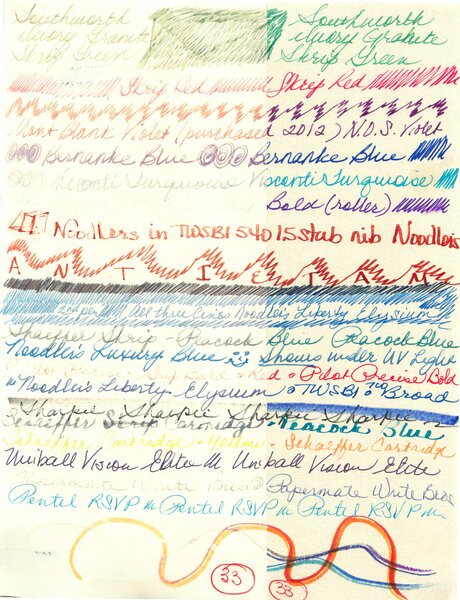 Southworth Southworth
Ivory Granite Ivory Granite
Skrip Green Skrip Green
Skrip Red Skrip Red
Mont Blank Violet (purchased 2012) N.O.S. Violet
Bernanke Blue Bernanke Blue
Visconti Turquoise Visconti Turquoise
Bold (roller)
Noodlers in TWSBI 540 1.5 stub nib Noodlers
A N T I E T A M
All three Noodler's Liberty Elysium
Sheaffer Skrip Peacock Blue Peacock Blue
Noodler's Luxury Blue Shows under UV Light
Bold Red Pilot Precise Bold
Noodler's Liberty Elysium TWSBI Broad
Sharpie Sharpie Sharpie Sharpie
Schaeffer Skrip Cartridge Peacock Blue
Schaeffer Cartridge Yellow Schaeffer Cartridge
Uniball Vision Elite M Uniball Vision Elite
Papermate Write Bros Papermate Write Bros
Pentel RSVP m Pentel RSVP m Pentel RSVP m
33 33